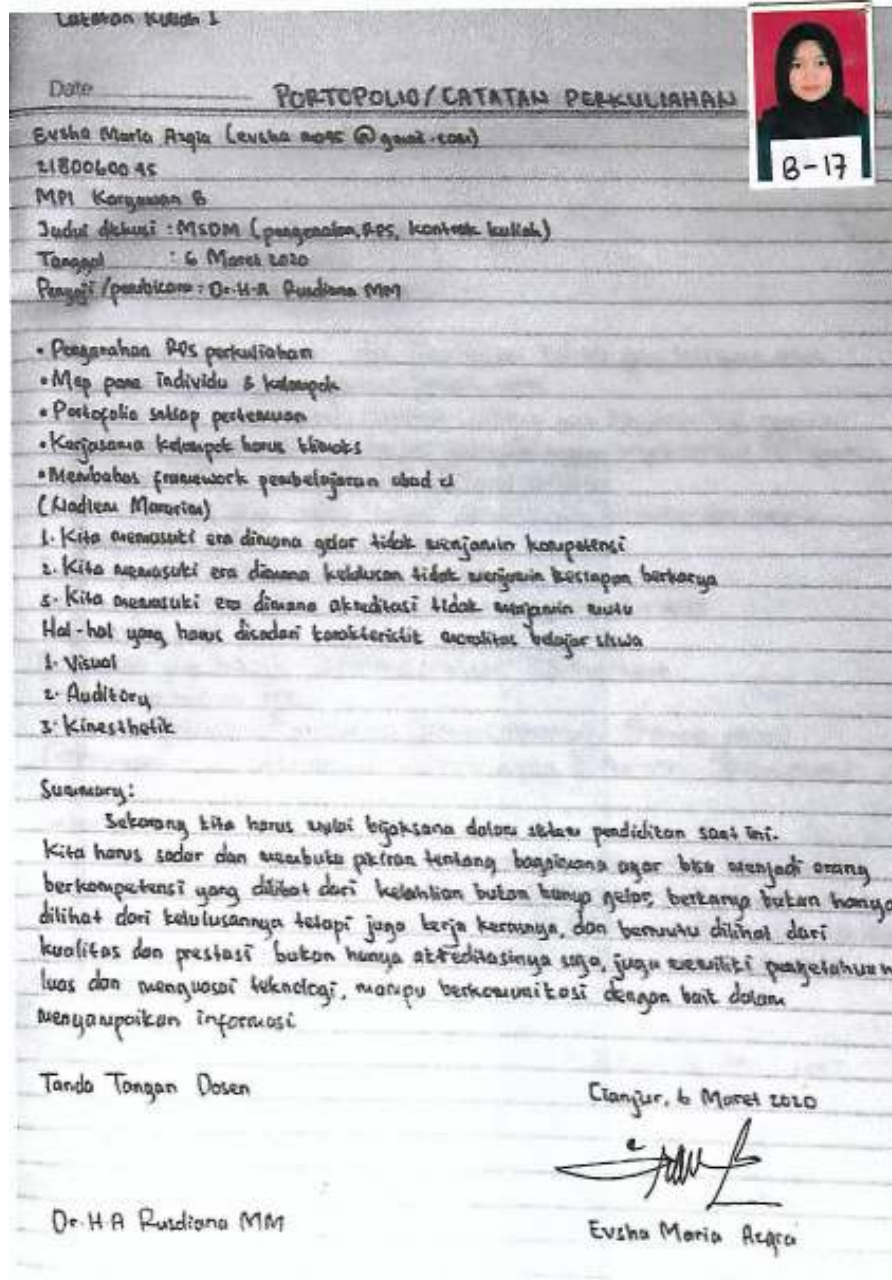 Catatan Kuliah 1
Date
PORTOPOLIO/CATATAN PERKULIAHAN
B-17
Evsha Maria Azqia
21800600 45
MPI Karyawan B
Judul diskusi : MSDM (pengenalan, RPS, kontrak kuliah)
Tanggal : 6 Maret 2020
Penyaji/pembicara : Dr. H. A Rusdiana MM
• Pengarahan RPS perkuliahan
• Map individu & kelompok
• Portofolio setiap pertemuan
• Kerjasama kelompok harus
• Membahas framework pembelajaran abad 21
(Nadiem Makarim)
1. Kita memasuki era dimana gelar tidak menjamin kompetensi
2. Kita memasuki era dimana kelulusan tidak menjamin kesiapan berkarya
3. Kita memasuki era dimana akreditasi tidak menjamin mutu
Hal-hal yang harus disadari karakteristik belajar siswa
1. Visual
2. Auditory
3. Kinesthetik
Summary:
Sekarang kita harus mulai bijaksana dalam pendidikan saat ini.
Kita harus sadar dan membuka pikiran tentang bagaimana agar bisa menjadi orang
berkompetensi yang dilihat dari keahlian bukan hanya gelar, berkarya bukan hanya
dilihat dari kelulusannya tetapi juga kerja kerasnya, dan bermutu dilihat dari
kualitas dan prestasi bukan hanya akreditasinya saja, juga memiliki pengetahuan
luas dan menguasai teknologi, mampu berkomunikasi dengan baik dalam
menyampaikan informasi
Tanda Tangan Dosen
Cianjur, 6 Maret 2020
Dr. H. A Rusdiana MM
Evsha Maria Azqia